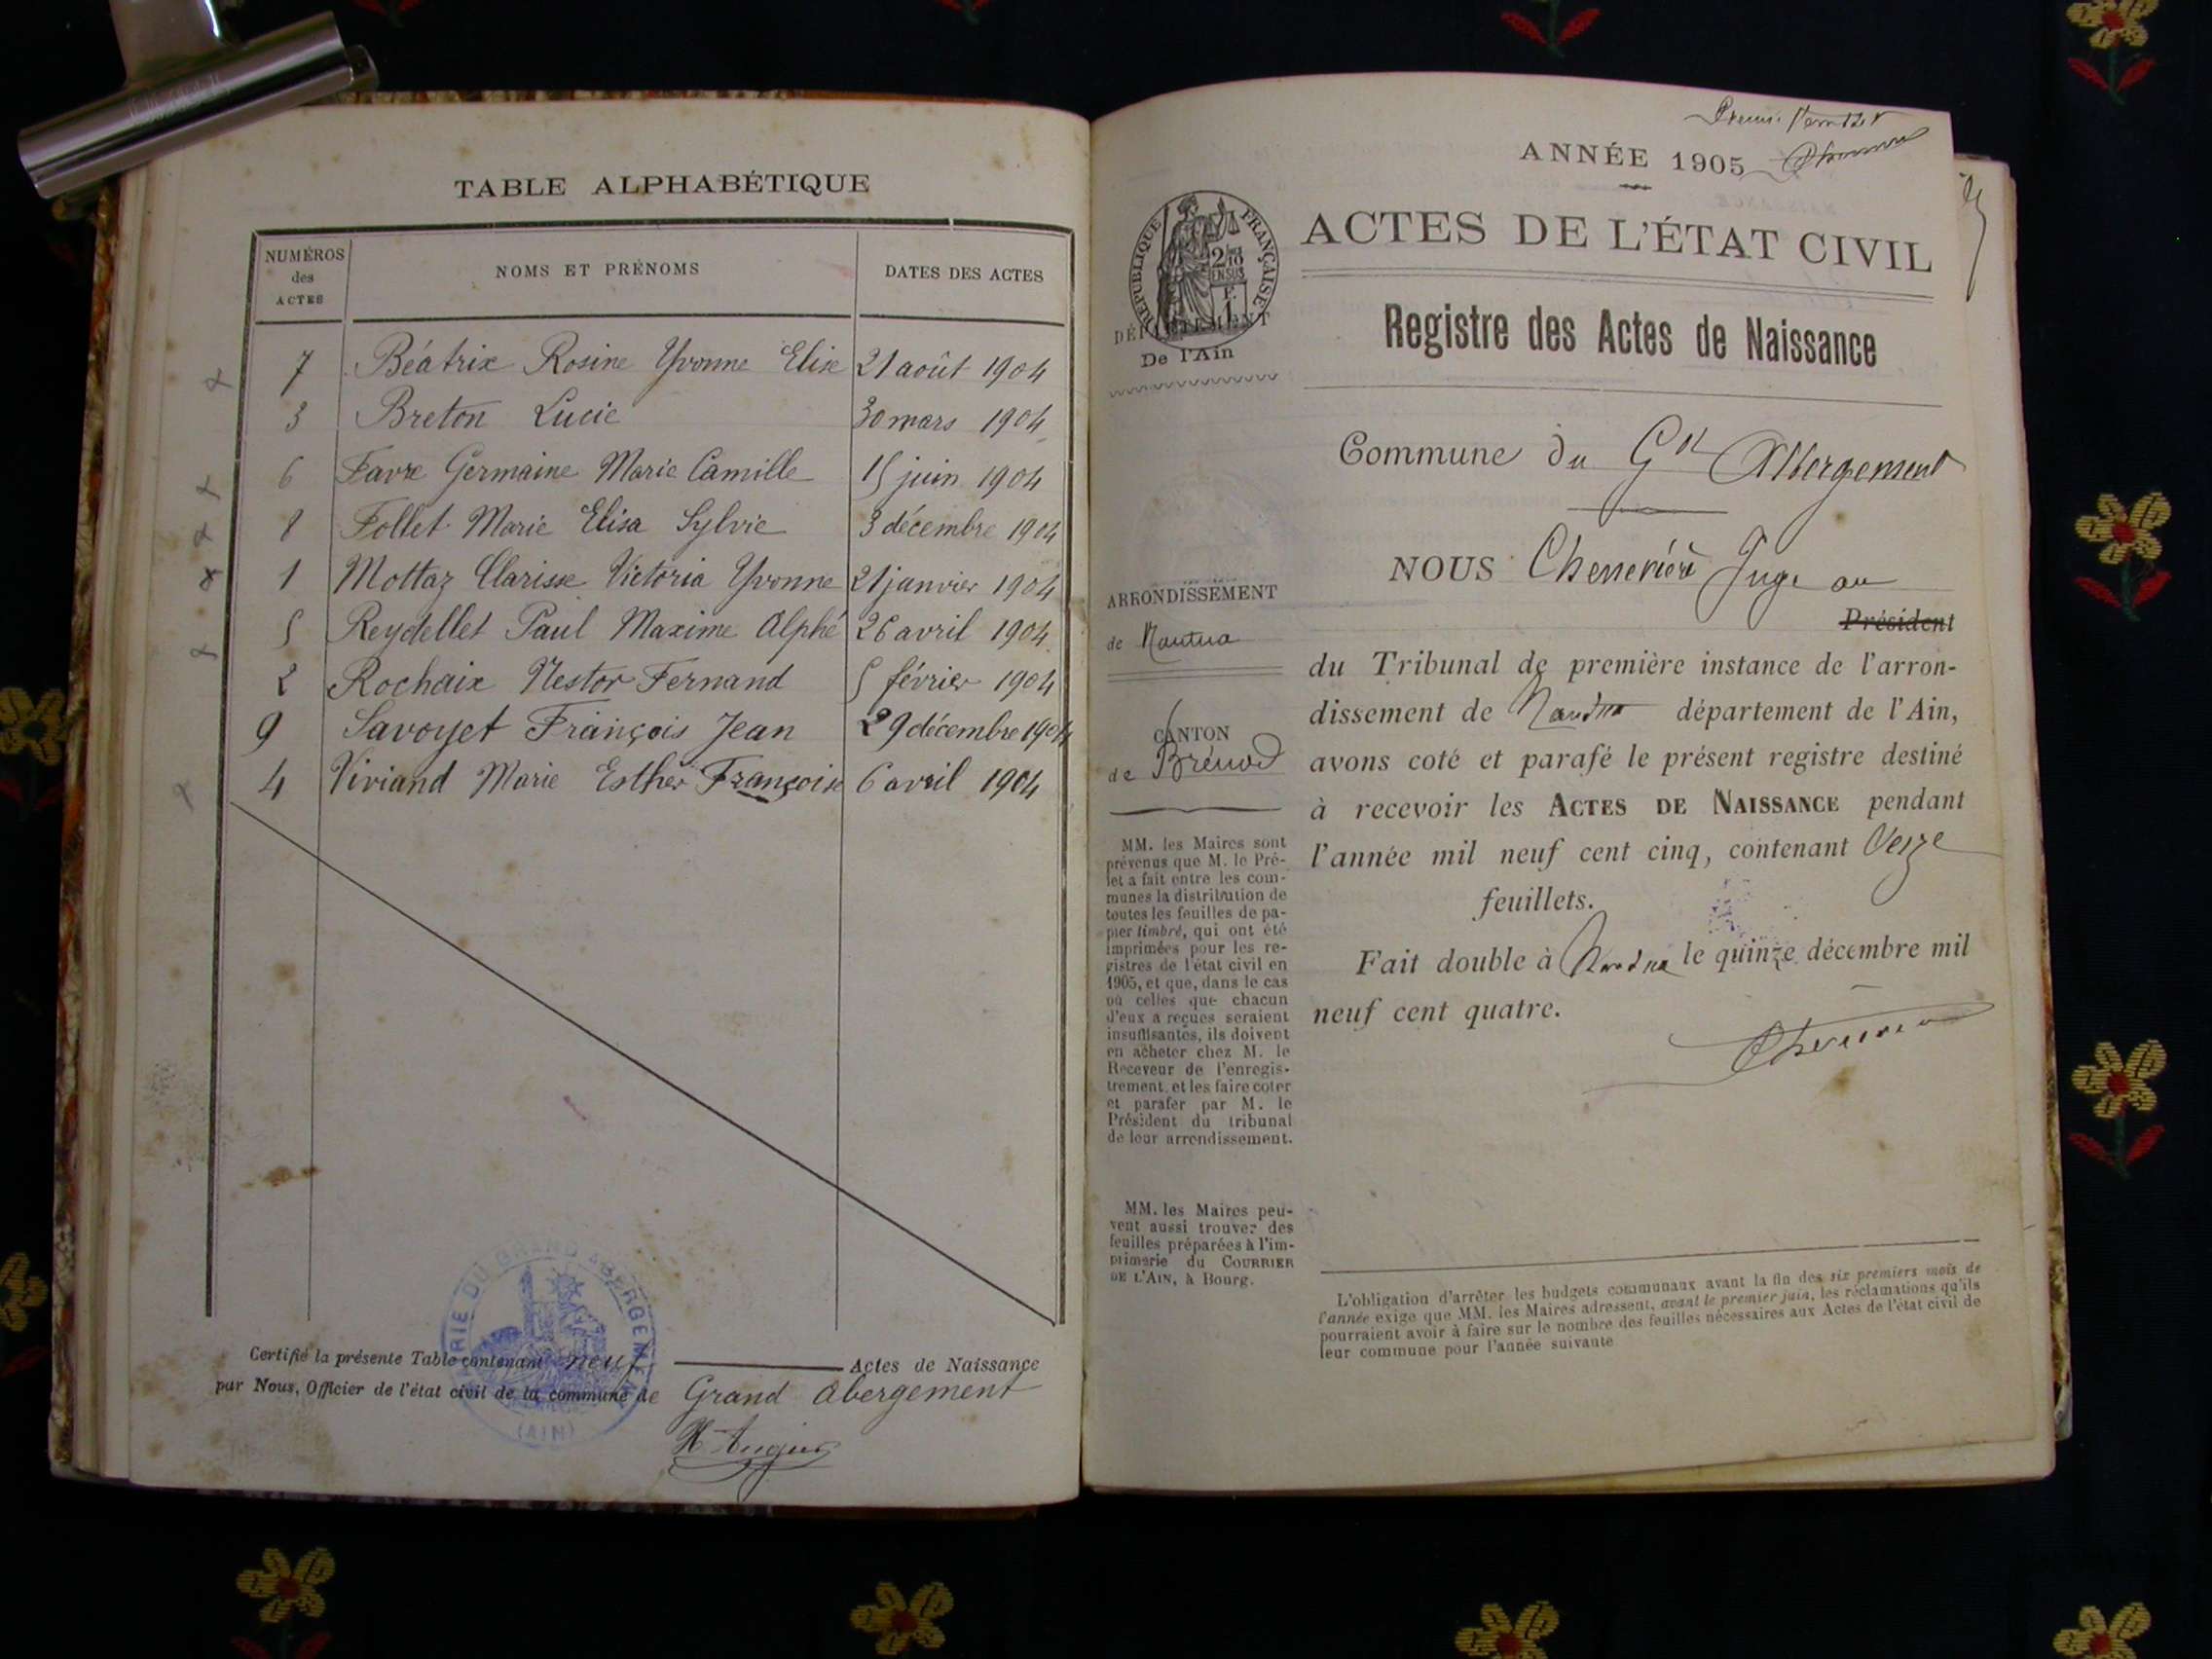 TABLE ALPHABÉTIQUE
NUMÉROS des ACTES NOMS ET PRÉNOMS DATES DES ACTES
7 Béatrix Rosine Yvonne Elise 21 août 1904
3 Breton Lucie 30 mars 1904
6 Favre Germaine Marie Camille 15 juin 1904
8 Follet Marie Elisa Sylvie 3 décembre 1904
1 Mottaz Clarisse Victoria Yvonne 21 janvier 1904
5 Reydellet Paul Maxime Alphé 26 avril 1904
2 Rochaix Nestor Fernand 5 février 1904
9 Savoyet François Jean 29 décembre 1904
4 Viviand Marie Esther Françoise 6 avril 1904
MAIRIE DU GRAND ABERGEMENT
(AIN)
Certifié la présente Table contenant neuf Actes de Naissance
par Nous, Officier de l'état civil de la commune de Grand Abergement
ANNÉE 1905
ACTES DE L'ÉTAT CIVIL
RÉPUBLIQUE FRANÇAISE
DÉPARTEMENT
De l'Ain
Registre des Actes de Naissance
Commune du Gd Abergement
ARRONDISSEMENT
de Nantua
CANTON
de Brénod
MM. les Maires sont
prévenus que M. le Pré-
fet a fait entre les com-
munes la distribution de
toutes les feuilles de pa-
pier timbré, qui ont été
imprimées pour les re-
gistres de l'état civil en
1905, et que, dans le cas
où celles que chacun
d'eux a reçues seraient
insuffisantes, ils doivent
en acheter chez M. le
Receveur de l'enregis-
trement, et les faire coter
et parafer par M. le
Président du tribunal
de leur arrondissement.
MM. les Maires peu-
vent aussi trouver des
feuilles préparées à l'im-
primerie du COURRIER
DE L'AIN, à Bourg.
NOUS Chenevière Juge au
Président
du Tribunal de première instance de l'arron-
dissement de Nantua département de l'Ain,
avons coté et parafé le présent registre destiné
à recevoir les ACTES DE NAISSANCE pendant
l'année mil neuf cent cinq, contenant
feuillets.
Fait double à Nantua le quinze décembre mil
neuf cent quatre.
L'obligation d'arrêter les budgets communaux avant la fin des six premiers mois de
l'année exige que MM. les Maires adressent, avant le premier juin, les réclamations qu'ils
pourraient avoir à faire sur le nombre des feuilles nécessaires aux Actes de l'état civil de
leur commune pour l'année suivante